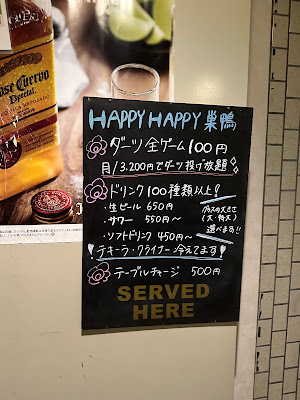 Jose Cuervo
Especial
HAPPY HAPPY 巣鴨
ダーツ全ゲーム100円
月/3,200円でダーツ投げ放題
ドリンク100種類以上!
生ビール 650円
サワー 550円〜
ソフトドリンク 450円〜
グラスの大きさ
(大・特大)
選べます!!
テキーラ・クライナー冷えてます
テーブルチャージ 500円
SERVED
HERE